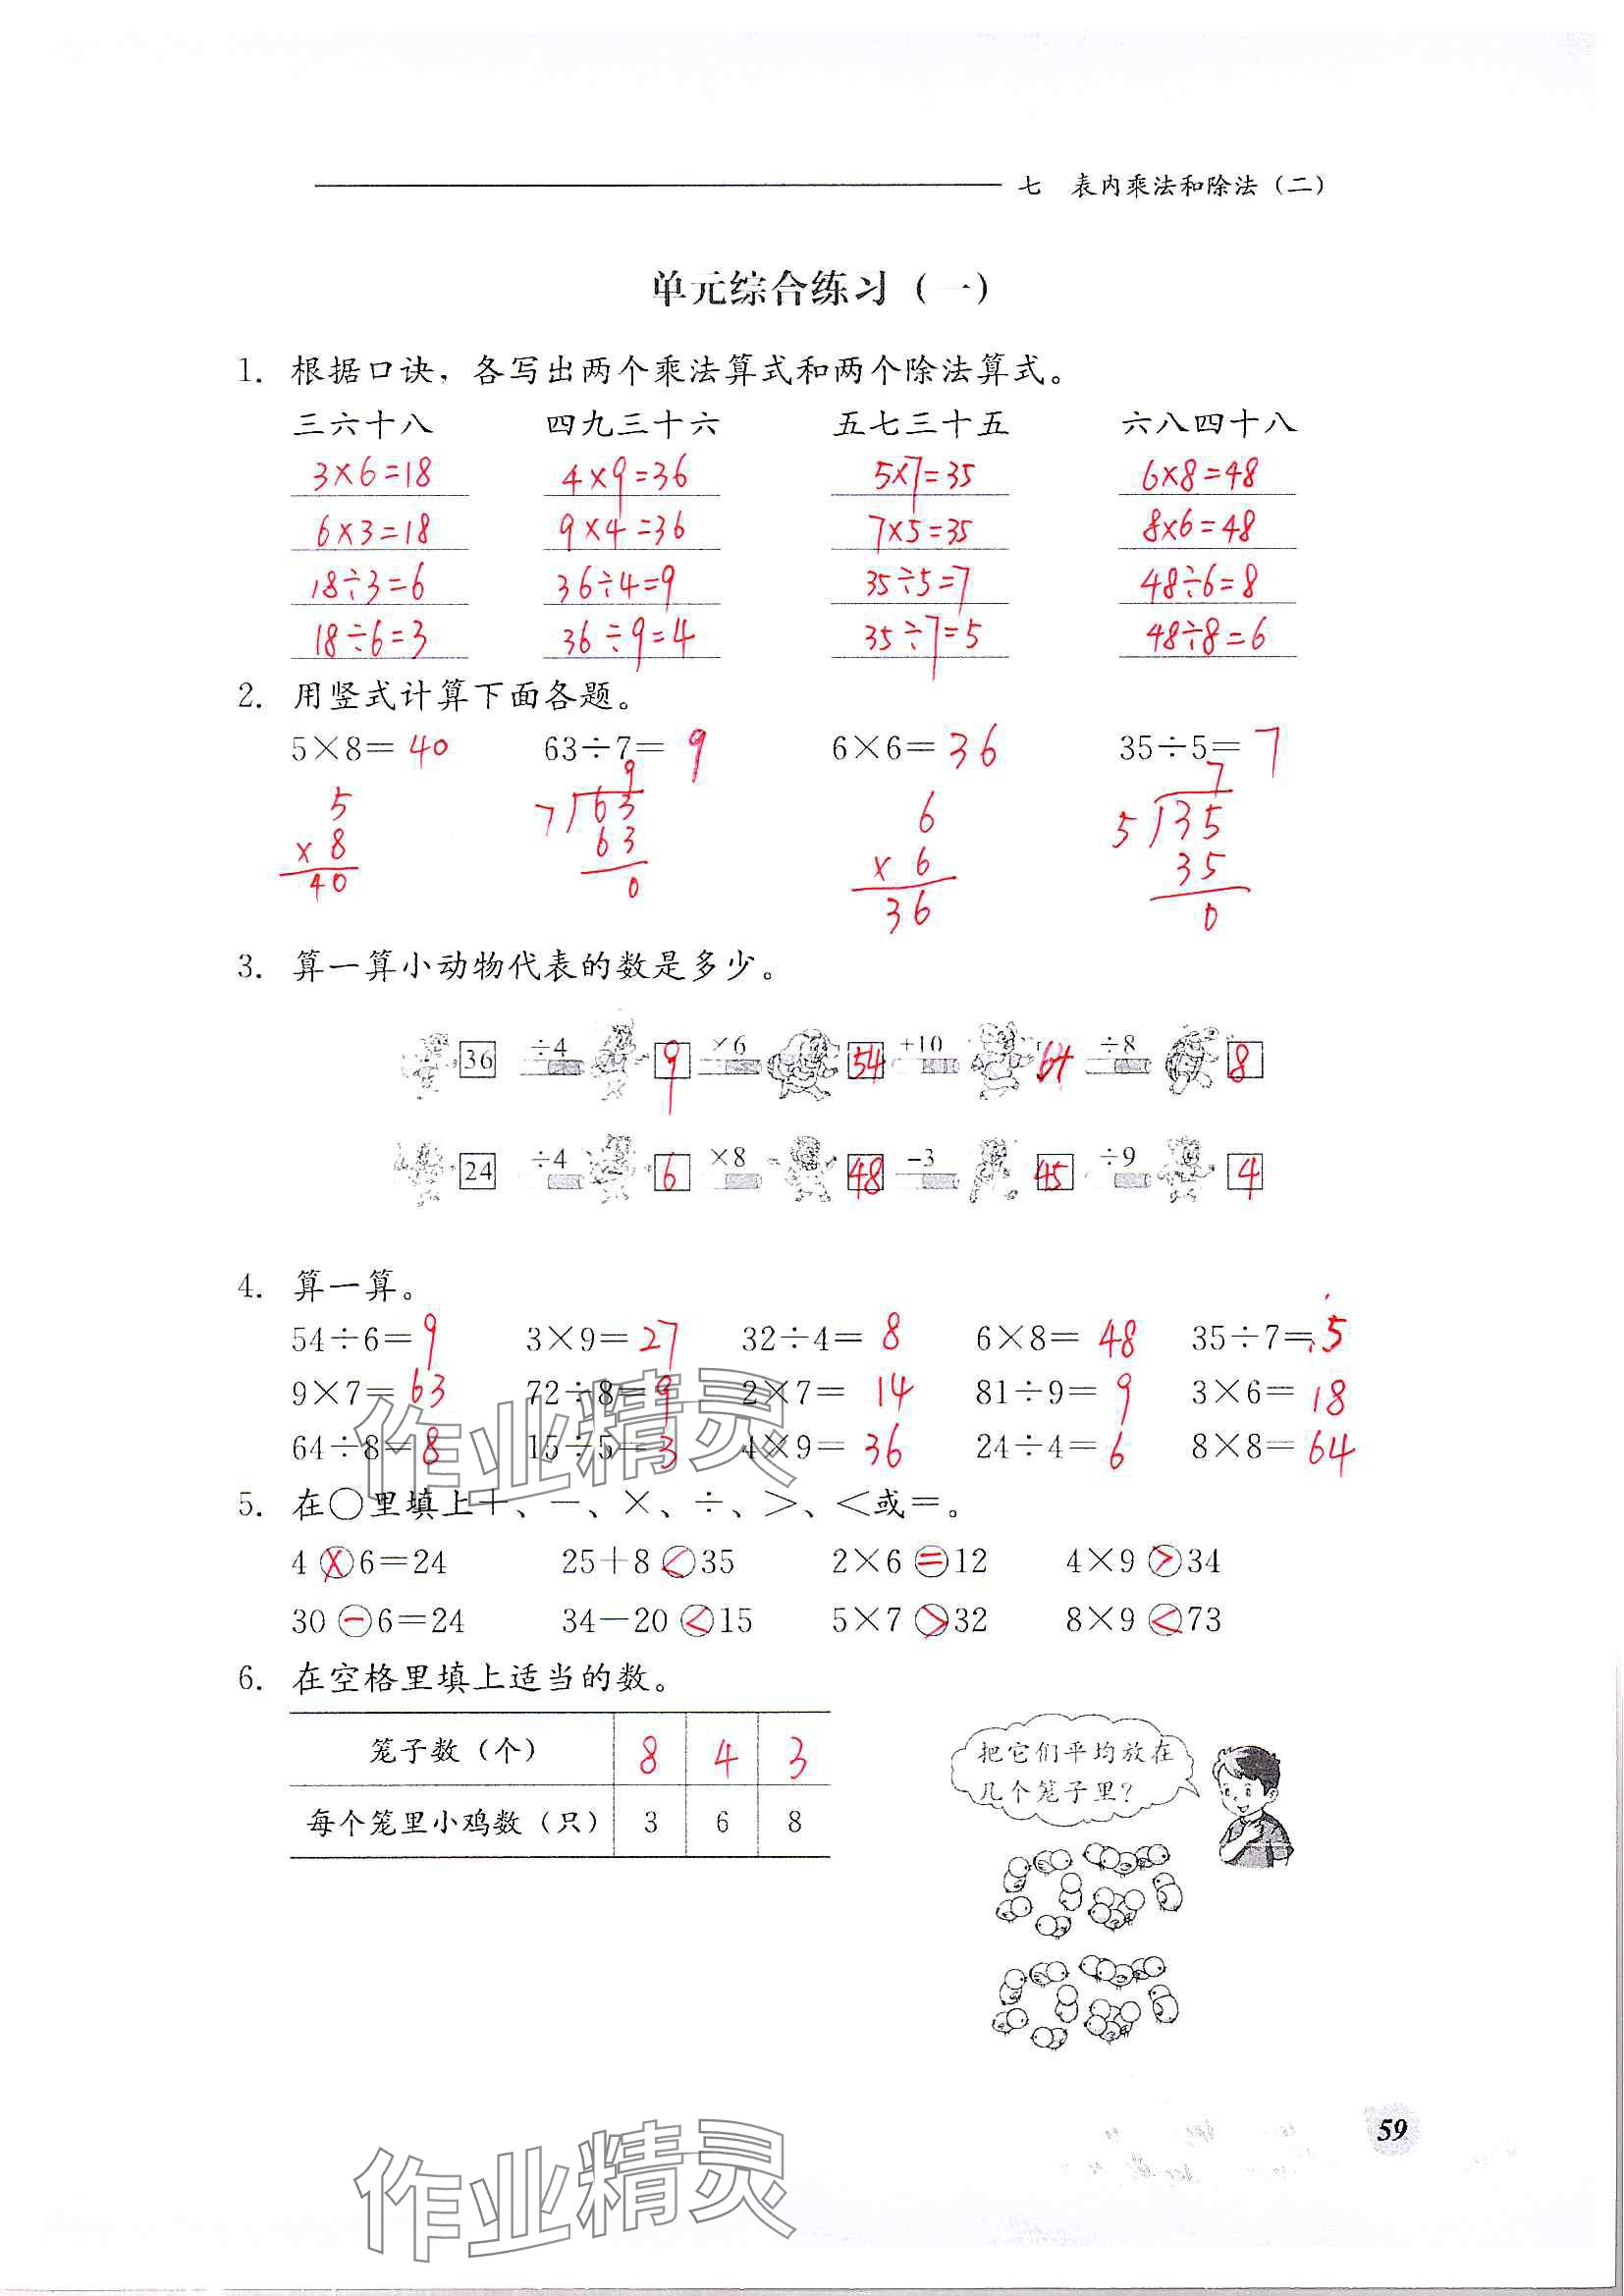 七 表内乘法和除法（二）
单元综合练习（一）
1. 根据口诀，各写出两个乘法算式和两个除法算式。
三六十八 四九三十六 五七三十五 六八四十八
3×6=18 4×9=36 5×7=35 6×8=48
6×3=18 9×4=36 7×5=35 8×6=48
18÷3=6 36÷4=9 35÷5=7 48÷6=8
18÷6=3 36÷9=4 35÷7=5 48÷8=6
2. 用竖式计算下面各题。
5×8=40 63÷7=9 6×6=36 35÷5=7
5 9 6 7
×8 7 63 ×6 5 35
40 63 36 35
0 0
3. 算一算小动物代表的数是多少。
36 ÷4 9 ×6 54 +10 64 ÷8 8
24 ÷4 6 ×8 48 −3 45 ÷9 4
4. 算一算。
54÷6=9 3×9=27 32÷4=8 6×8=48 35÷7=5
9×7=63 72÷8=9 2×7=14 81÷9=9 3×6=18
64÷8=8 15÷5=3 4×9=36 24÷4=6 8×8=64
5. 在○里填上＋、－、×、÷、＞、＜或＝。
4×6=24 25+8<35 2×6=12 4×9>34
30−6=24 34−20<15 5×7>32 8×9<73
6. 在空格里填上适当的数。
笼子数（个） 8 4 3
每个笼里小鸡数（只） 3 6 8
把它们平均放在
几个笼子里？
59
作业精灵
作业精灵